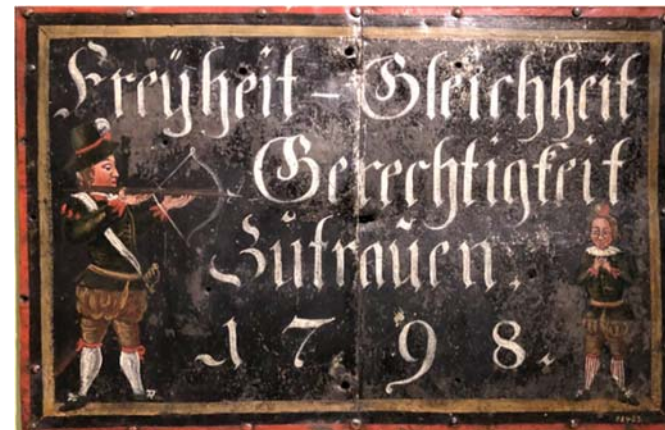 Freÿheit – Gleichheit
Gerechtigkeit
Zutrauen.
1798.